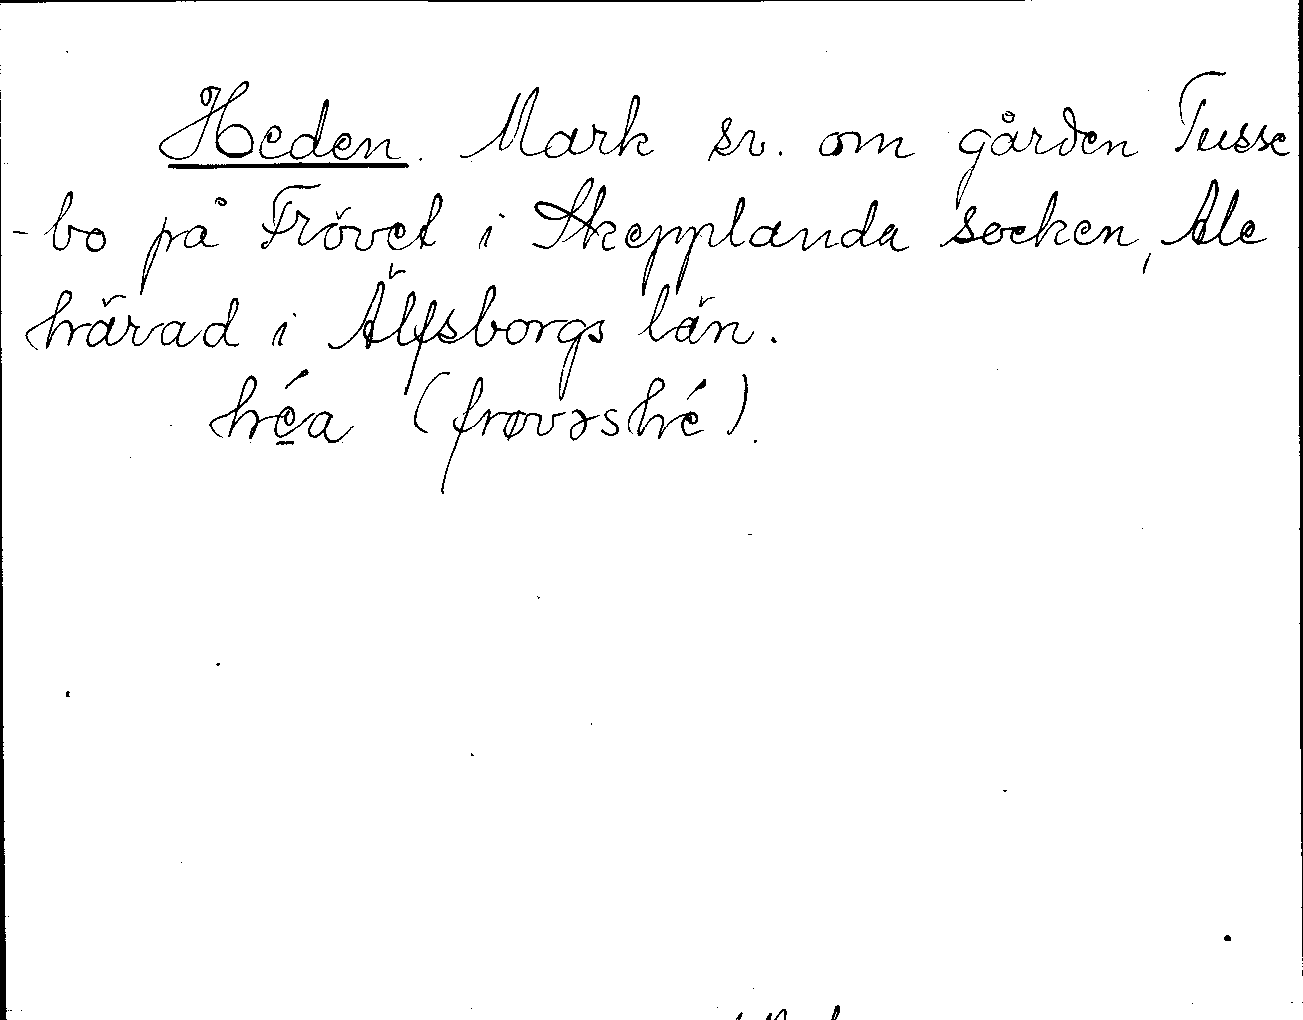 Heden. Mark sv. om gården Tusse
-bo på Frövet i Skepplanda socken, Ale
härad i Älfsborgs län.
héa (frøvəshé).